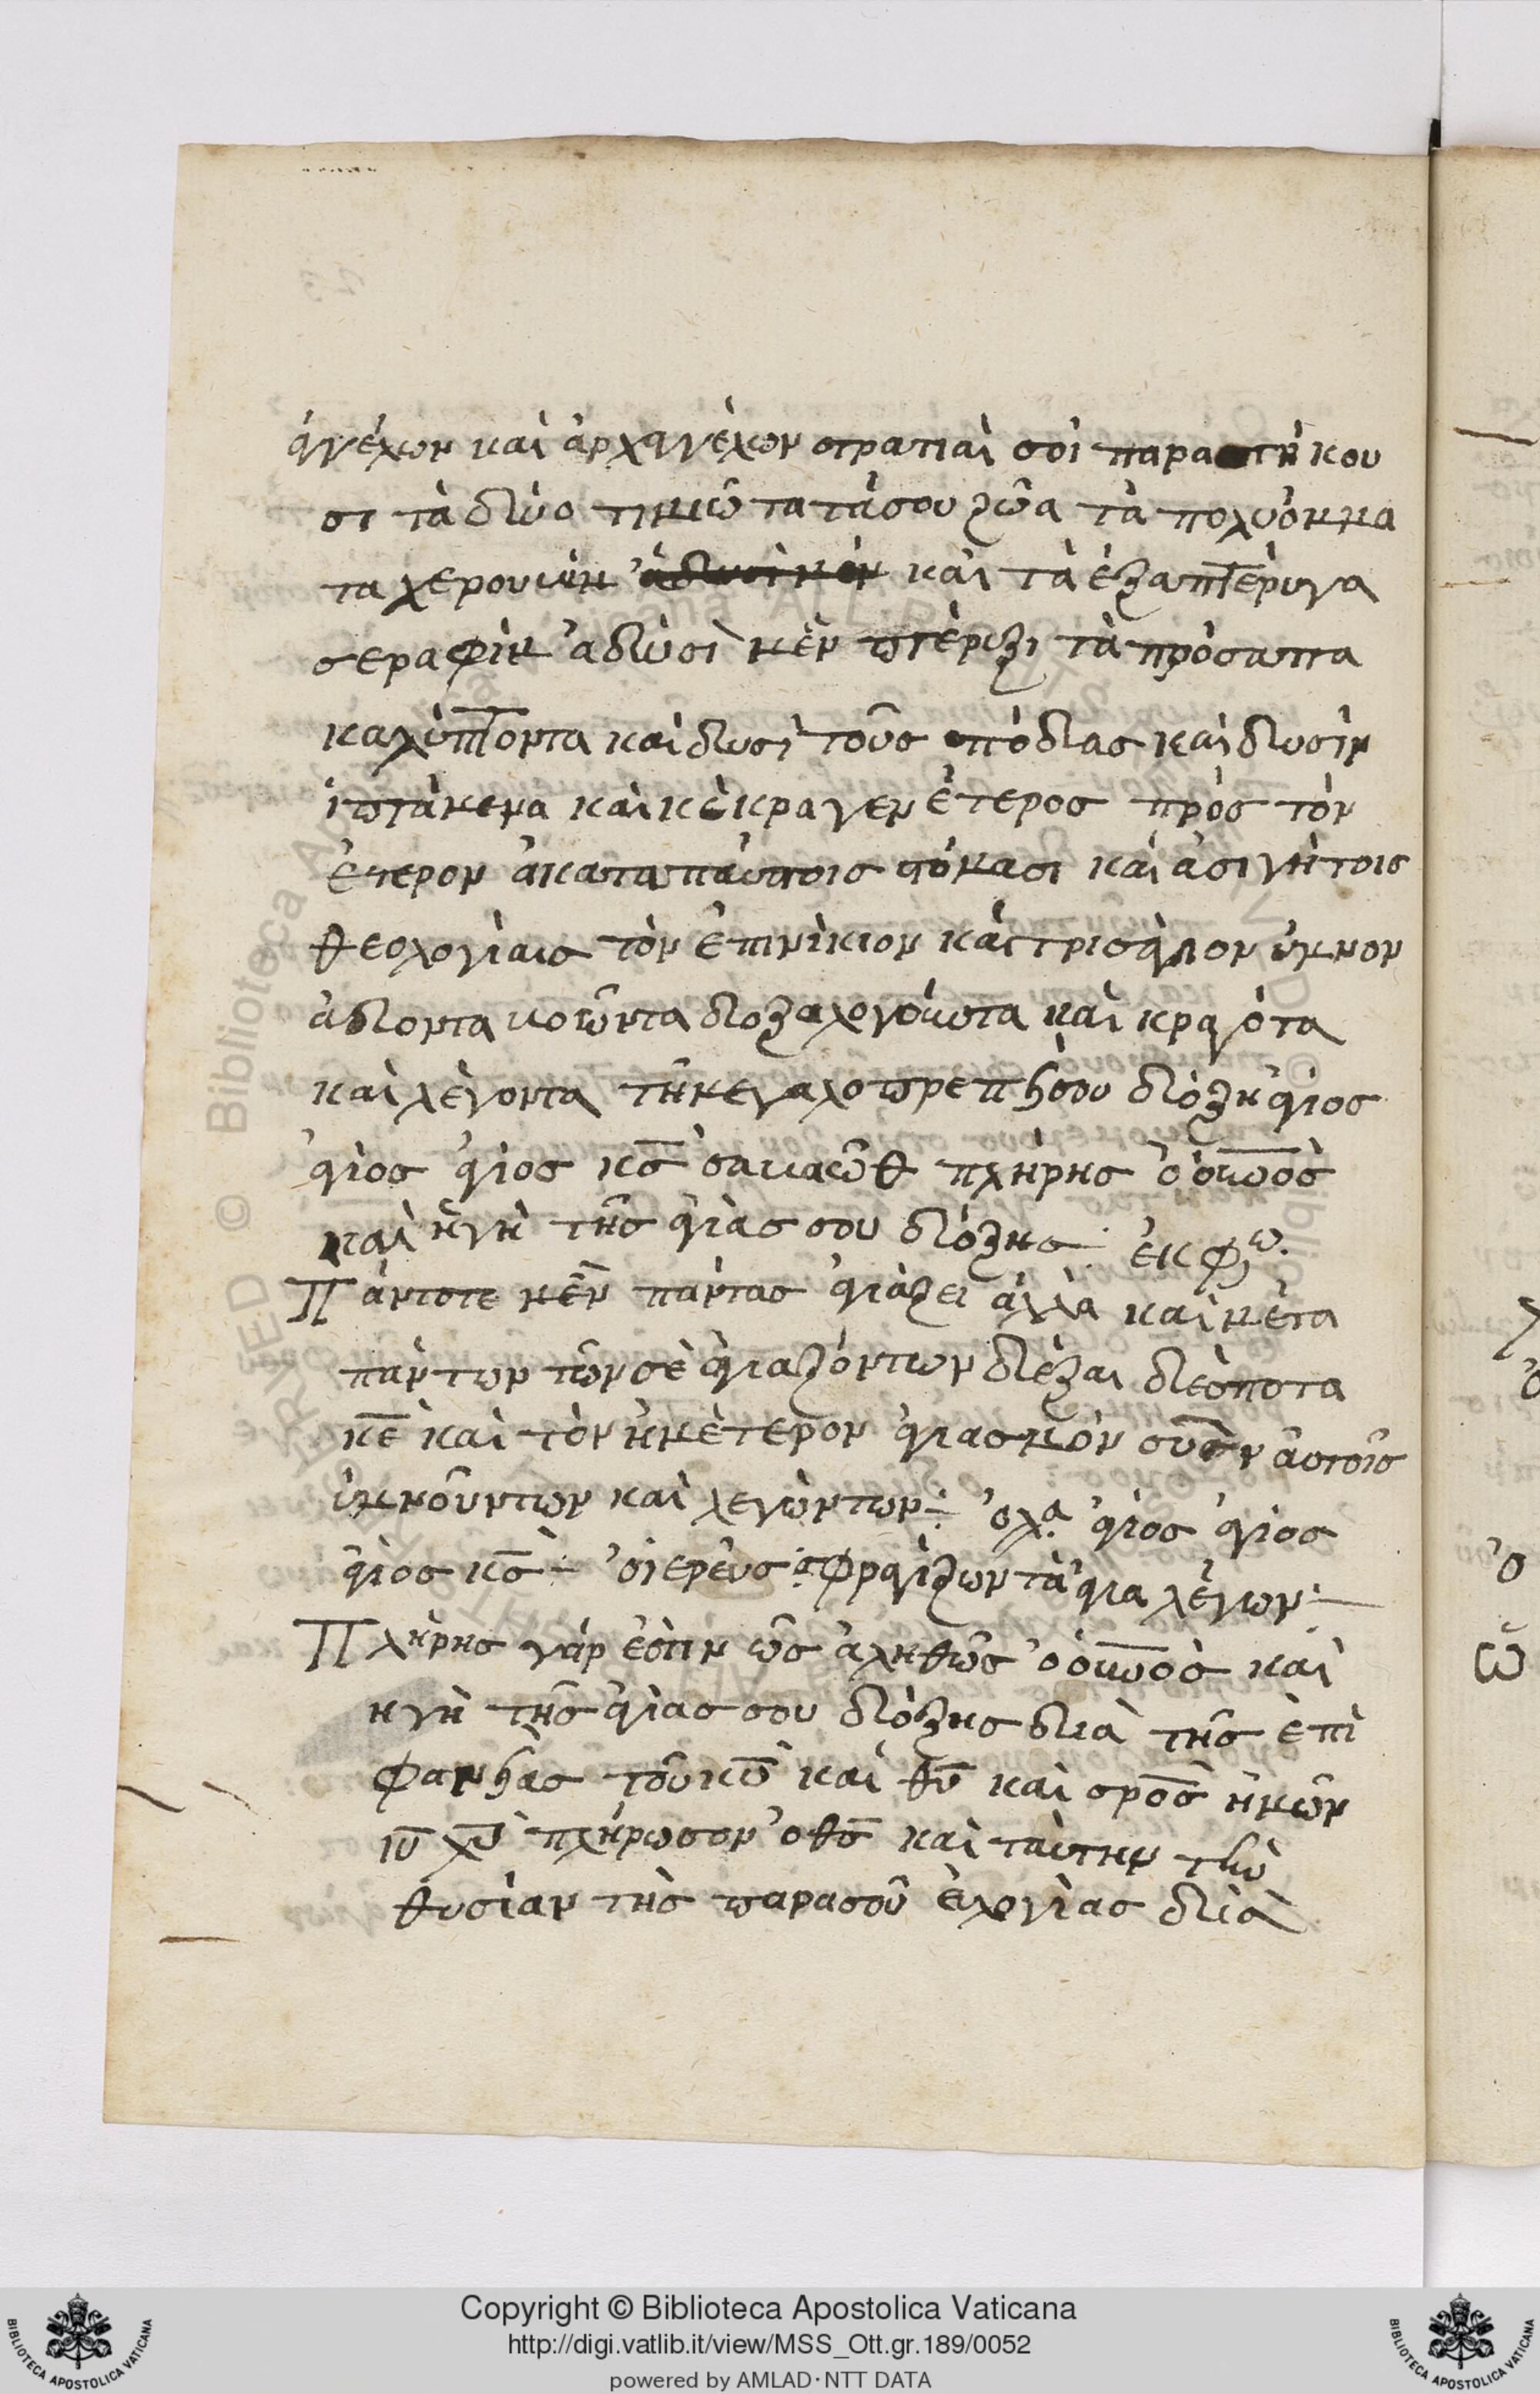 ἀγγέλων καὶ ἀρχαγγέλων στρατιαὶ σοὶ παραστήκου
σι τὰ δύο τιμιώτατά σου ζῶα τὰ πολυόμμα
τα χερουβὶμ καὶ τὰ ἑξαπτέρυγα
σεραφὶμ ἃ δυσὶ μὲν πτέρυξι τὰ πρόσωπα
καλύπτοντα καὶ δυσὶ τοὺς πόδας καὶ δυσὶν
ἱπτάμενα καὶ κέκραγεν ἕτερος πρὸς τὸν
ἕτερον ἀκαταπαύστοις στόμασι καὶ ἀσιγήτοις
θεολογίαις τὸν ἐπινίκιον καὶ τρισάγιον ὕμνον
ἄδοντα βοῶντα δοξαλογοῦντα καὶ κραγότα
καὶ λέγοντα τῆ μεγαλοπρεπῆ σου δόξη ἅγιος
ἅγιος ἅγιος κς σαβαὼθ πλήρης ὁ οὐνος
καὶ ἡ γῆ τῆς ἁγίας σου δόξης ἐκφω
Πάντοτε μὲν πάντας ἁγιάζει ἀλλὰ καὶ μετὰ
πάντων τῶν σὲ ἁγιαζόντων δέξαι δέσποτα
κε καὶ τὸν ἡμέτερον ἁγιασμὸν σὺν αὐτοῖς
ὑμνούντων καὶ λεγόντων ὁ λα ἅγιος ἅγιος
ἅγιος κς ὁ ἱερεὺς σφραγίζων τὰ ἅγια λέγων
Πλήρης γάρ ἐστιν ὡς ἀληθῶς ὁ οὐνος καὶ
ἡ γῆ τῆς ἁγίας σου δόξης διὰ τῆς ἐπι
φανήας τοῦ κυ καὶ θυ καὶ σρος ἡμῶν
ιυ χυ πλήρωσον ὁ θς καὶ ταύτην τὴν
θυσίαν τῆς παρὰ σοῦ εὐλογίας διὰ
Copyright © Biblioteca Apostolica Vaticana
http://digi.vatlib.it/view/MSS_Ott.gr.189/0052
powered by AMLAD·NTT DATA